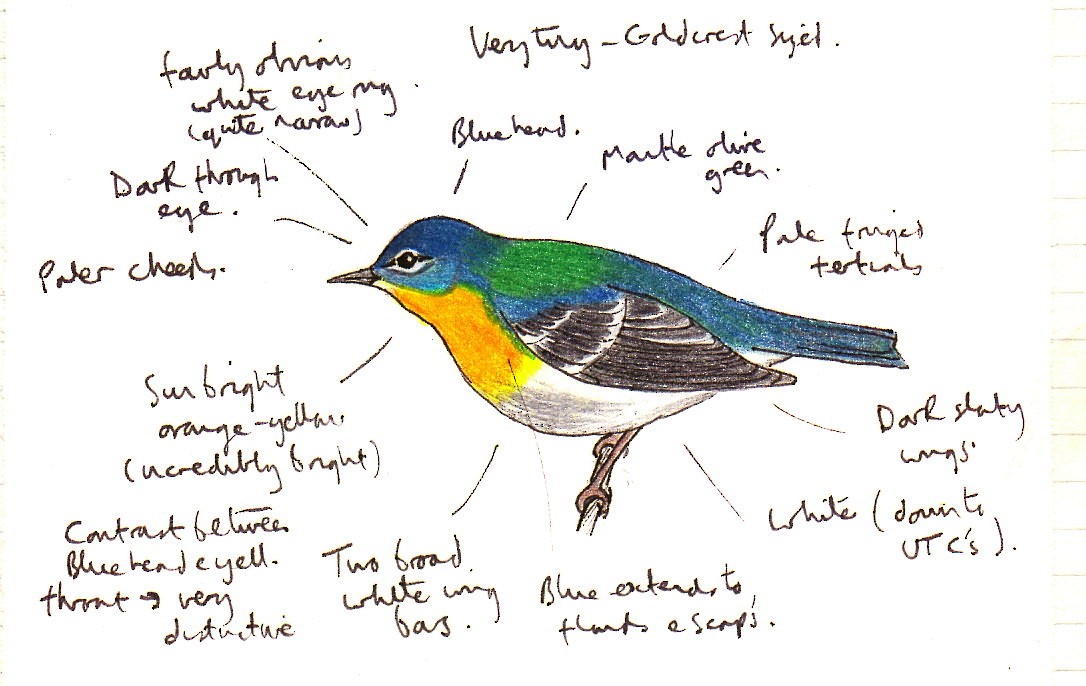 Very tiny - Goldcrest sized.
fairly obvious
white eye ring.
(quite narrow)
Blue head.
Mantle olive
green.
Dark through
eye.
Pale fringed
tertials
Paler cheeks.
Sun bright
orange-yellow.
(incredibly bright)
Dark slaty
wings.
White (down to
UTC's).
Contrast between
Blue head & yell.
throat → very
distinctive
Two broad
white wing
bars.
Blue extends to
flanks & scaps.